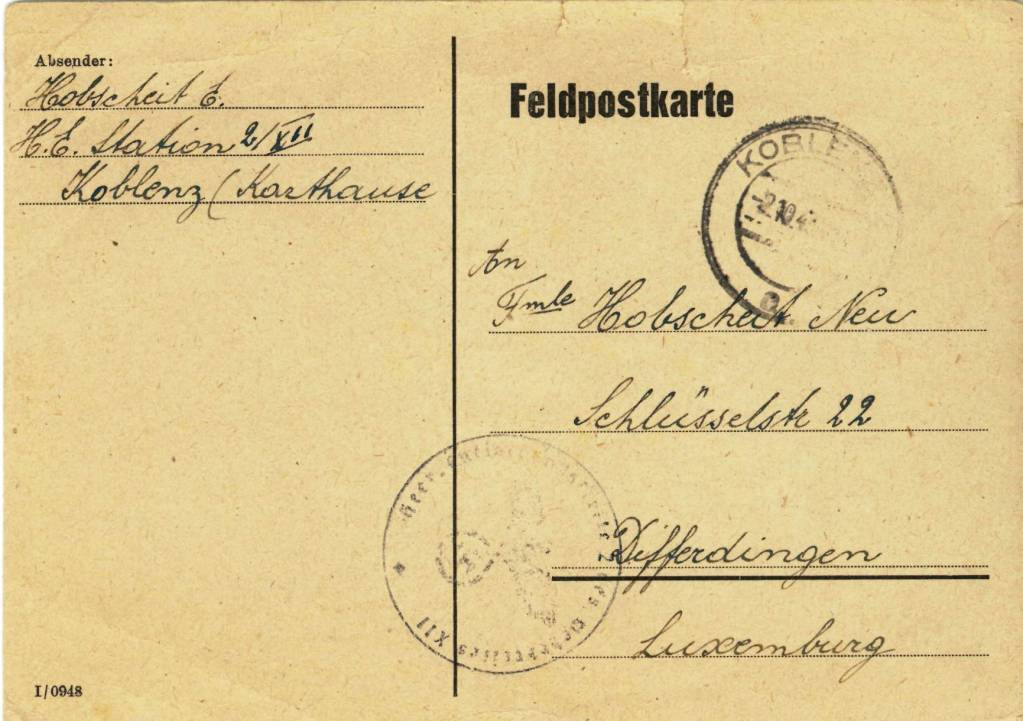 Absender:
Hobscheit E.
H.E. Station 2/XII
Koblenz (Karthause
Feldpostkarte
KOBLE
An
Fmle Hobscheit Neu
Schlüsselstr 22
Differdingen
Luxemburg
Heer. XII
I/0948